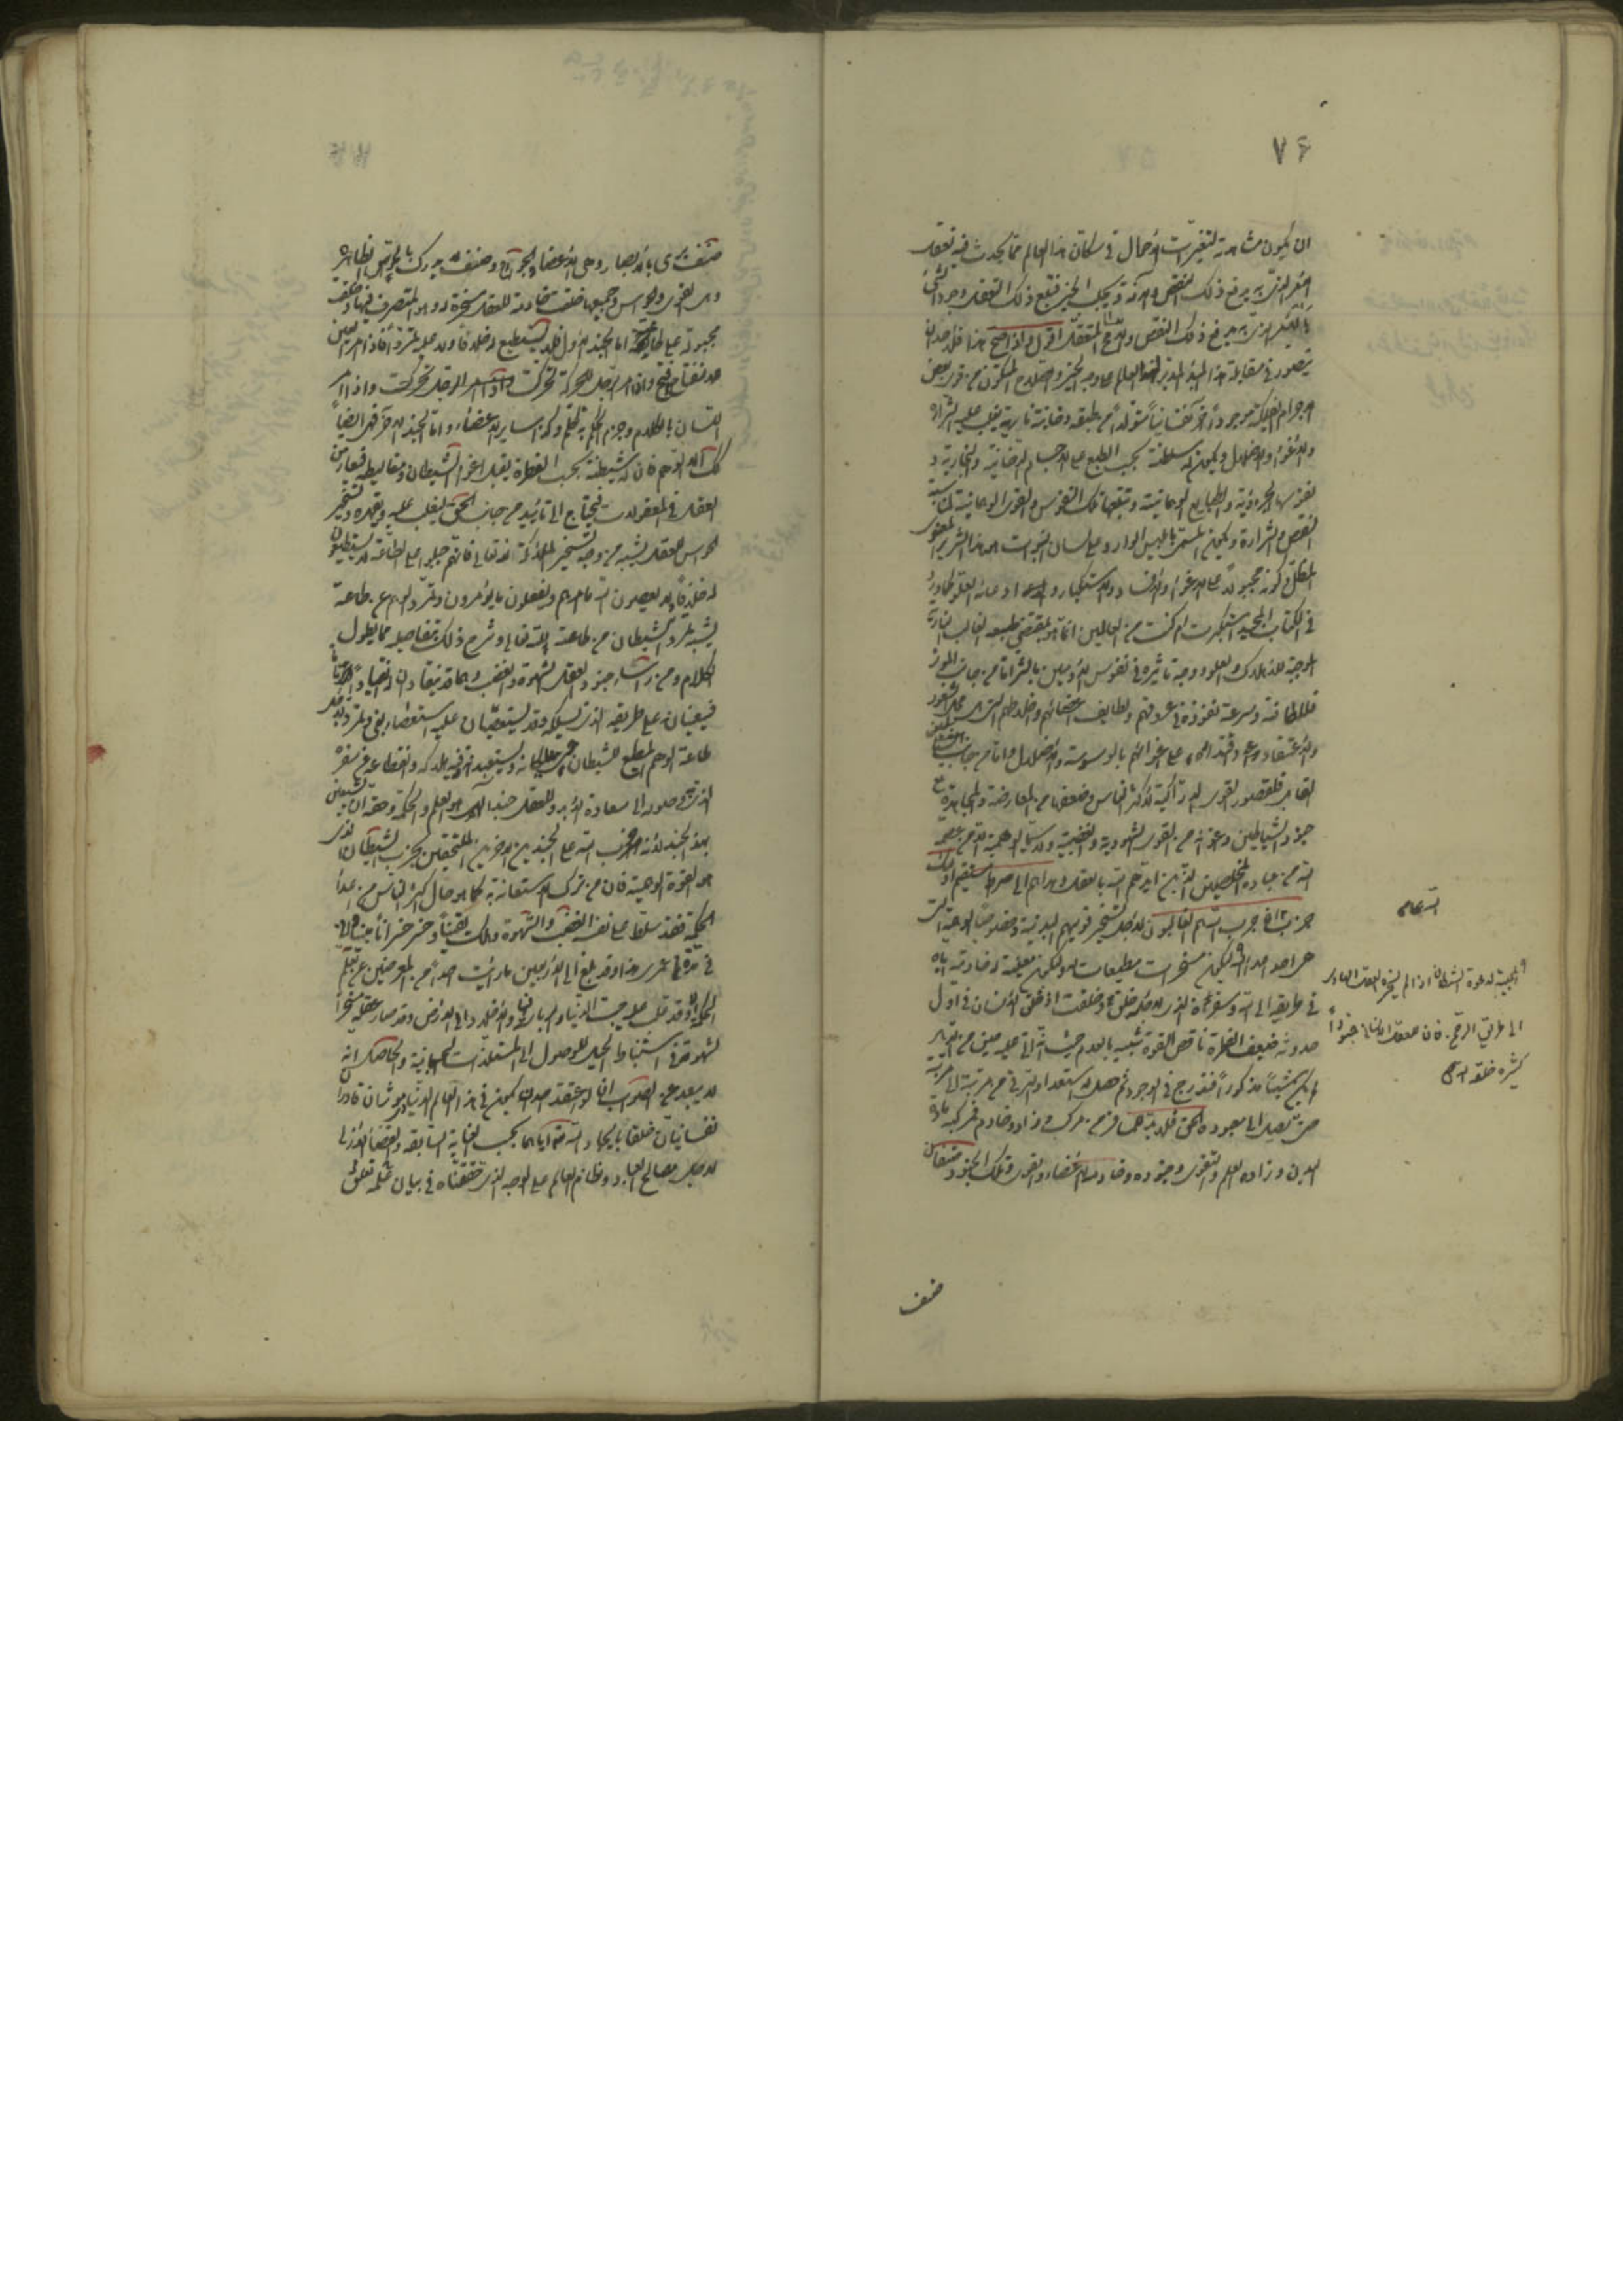 ٧٤
ان يكون مشاهدته لتغيرات الاحوال في سكان هذا العالم مما يحدث فيه تعقل
الامر الذي به يدفع ذلك النقص والآفة ويجلب الخير فيتبع ذلك التعقل وجود الشيء
ذلك النقص المتعقل اقول واذا صح هذا فلاحد ان
يتصور في مقابلة هذا المبدأ المدبر لهذا العالم على وجه الخير والصلاح المتكون من بعض
الاجرام الفلكية موجوداً آخر نفسانياً متولداً من طبقة دخانية نارية يغلب عليه الشرارة
والاغواء والاضلال ويكون له سلطنة بحسب الطبع على الاجسام الدخانية والبخارية و
نفوسها الجزؤية والطبايع الوهمانية وتتبعها تلك النفوس والقوى الوهمانية لمناسبة
النقص والشرارة ويكون المسمى بابليس الوارد على لسان النبوات هو هذا الشرير المغوى
المضل وكونه مجبولاً على الاغواء والافساد والاستكبار وادعائه العلو كما ورد
في الكتاب المجيد استكبرت ام كنت من العالين انما هو بمقتضى طبعه الغالب النارية
الموجبة للاهلاك والعلو ووجه تاثيره في نفوس الآدميين بالشر اما من جانب المؤثر
فللطافته وسرعة نفوذه في عروقهم ولطايف اعضائهم واخلاطهم التي هي محل الشعور
والاعتقاد على اغوائهم بالوسوسة والاضلال واما من جانب
القابل فلقصور القوى الادراكية لاكثر الناس وضعفها عن المعارضة والمجاهدة مع
جنود الشياطين واعوانه من القوى الشهوية والغضبية ولا سيما الوهمية الا من عصمه
الله من عباده المخلصين الذين ايدهم الله بالعقل وهداهم الى صراط مستقيم اولئك
حزب الله الا ان حزب الله هم الغالبون لاجل تسخير قويهم البدنية وخصوصاً الوهمية التي
هي احد اعداء الله ليكون مسخرات مطيعات له ولتكون معينة له خادمة اياه
في طريقه الى الله وسفره الذي لاجله خلق اذ خلق الانسان في اول
حدوثه ضعيف الفطرة ناقص القوة شبيه بالعدم حيث اتى عليه حين من الدهر
لم يكن شيئاً مذكوراً فتدرج في الوجود ثم حصل له استعداد الترقي من مرتبة الى مرتبة
حتى يصل الى معبوده الحق فلا بد له من مركب وزاد وخادم فمركبه مادة
البدن وزاده العلم والتقوى وجنوده وخادمه الاعضاء والقوى وتلك الجنود صنفان
الله تعالى
والمجيبة لدعوة الشيطان اذا لم يسخره العقل الهادي
الى طريق الحق فان للعقل الانساني جنوداً
كثيرة خلقه الله
صنف
صنف يرى بالابصار وهي الاعضاء والجوارح وصنف لا يدرك بالحواس الظاهرة
وهي القوى والحواس وجميعها خلقت خادمة للعقل مسخرة له وهو المتصرف فيها وخلقت
مجبولة على طاعته اما الجند الاول فلا يستطيع له خلافاً ولا عليه تمرداً فاذا امر العين
للانفتاح انفتح واذا امر الرجل للحركة تحركت واذا امر
اللسان بالكلام وجزم الحكم به تكلم وكذا ساير الاعضاء واما الجند الآخر فهي ايضاً
كذلك الا الوهم فان له شيطنة بحسب الفطرة يقبل اغواء الشيطان ومغاليطه فيعارض
العقل في المعقولات فيحتاج الى تائيد من جانب الحق ليغلب عليه ويقهره وتسخير
الحواس للعقل يشبه من وجه تسخير الملائكة لله تعالى فانهم جبلوا على الطاعة لا يستطيعون
له خلافاً ولا يعصون الله ما امرهم ويفعلون ما يؤمرون وتمرد الوهم عن طاعة
يشبه تمرد الشيطان من طاعة الله تعالى وشرح ذلك بتفاصيله مما يطول
الكلام ومن رؤساء جنود العقل الشهوة والغضب وهما قد ينقادان له انقياداً تاماً
فيعينان على طريقه الذي يسلكه وقد يستعصيان عليه استعصاء بغي وتمرد لاجل
طاعة الوهم المطيع للشيطان ويستعبدانه وفيه هلاكه وانقطاعه عن سفره
الذي به وصوله الى سعادة الابد وللعقل جند آخر هو العلم والحكمة وحقه ان يستعين
بهذا الجند لانه حزب الله على الجندين الاخرين الملتحقين بحزب الشيطان الذي
هو القوة الوهمية فان من ترك الاستعانة به كما هو حال اكثر الناس من اعداء
الحكمة فقد سلط على نفسه الغضب والشهوة وهلك يقيناً وخسر خسراناً مبيناً
في مدة عمري هذا وقد بلغ الى الاربعين ما رايت احداً من المعرضين عن تعلم
الحكمة الا وقد غلب عليه حب الدنيا والرياسة فيها والاخلاد الى الارض وقد صار عقله مسخراً
لشهوته في استنباط الحيل للوصول الى المستلذات الجسمانية والحاصل انه
لا يبعد عن الصواب ان لو اعتقد احد ان يكون في هذا العالم الدنياوي مؤثران قادران
نفسانيان خلقا بايجاد الله تعالى اياهما بحسب العناية السابقة والقضاء الازلي
لاجل مصالح العباد ونظام العالم على الوجه الذي حققناه في بيان تعلق